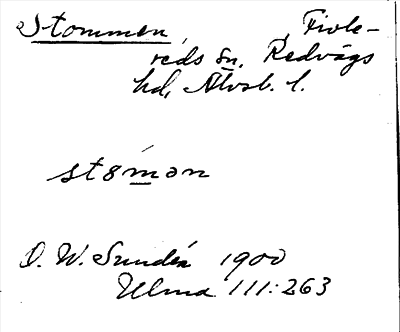 Stommen, Fivle-
reds sn, Redvägs
hd, Älvsb. l.
stómən
D. W. Sundén 1900
Ulma 111:263